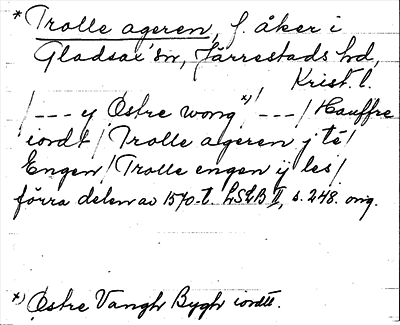 * Trolle ageren, f. åker i
Gladsax' sn, Järrestads hd,
Krist. l.
/ - - - y Østre wong *) / - - - / Hauffre
iordt / Trolle ageren j té /
Engen / Trolle engen ij les /
förra delen av 1570-t. LSLB II, s. 248. orig.
*) Østre Vangh Bygh iordtt.